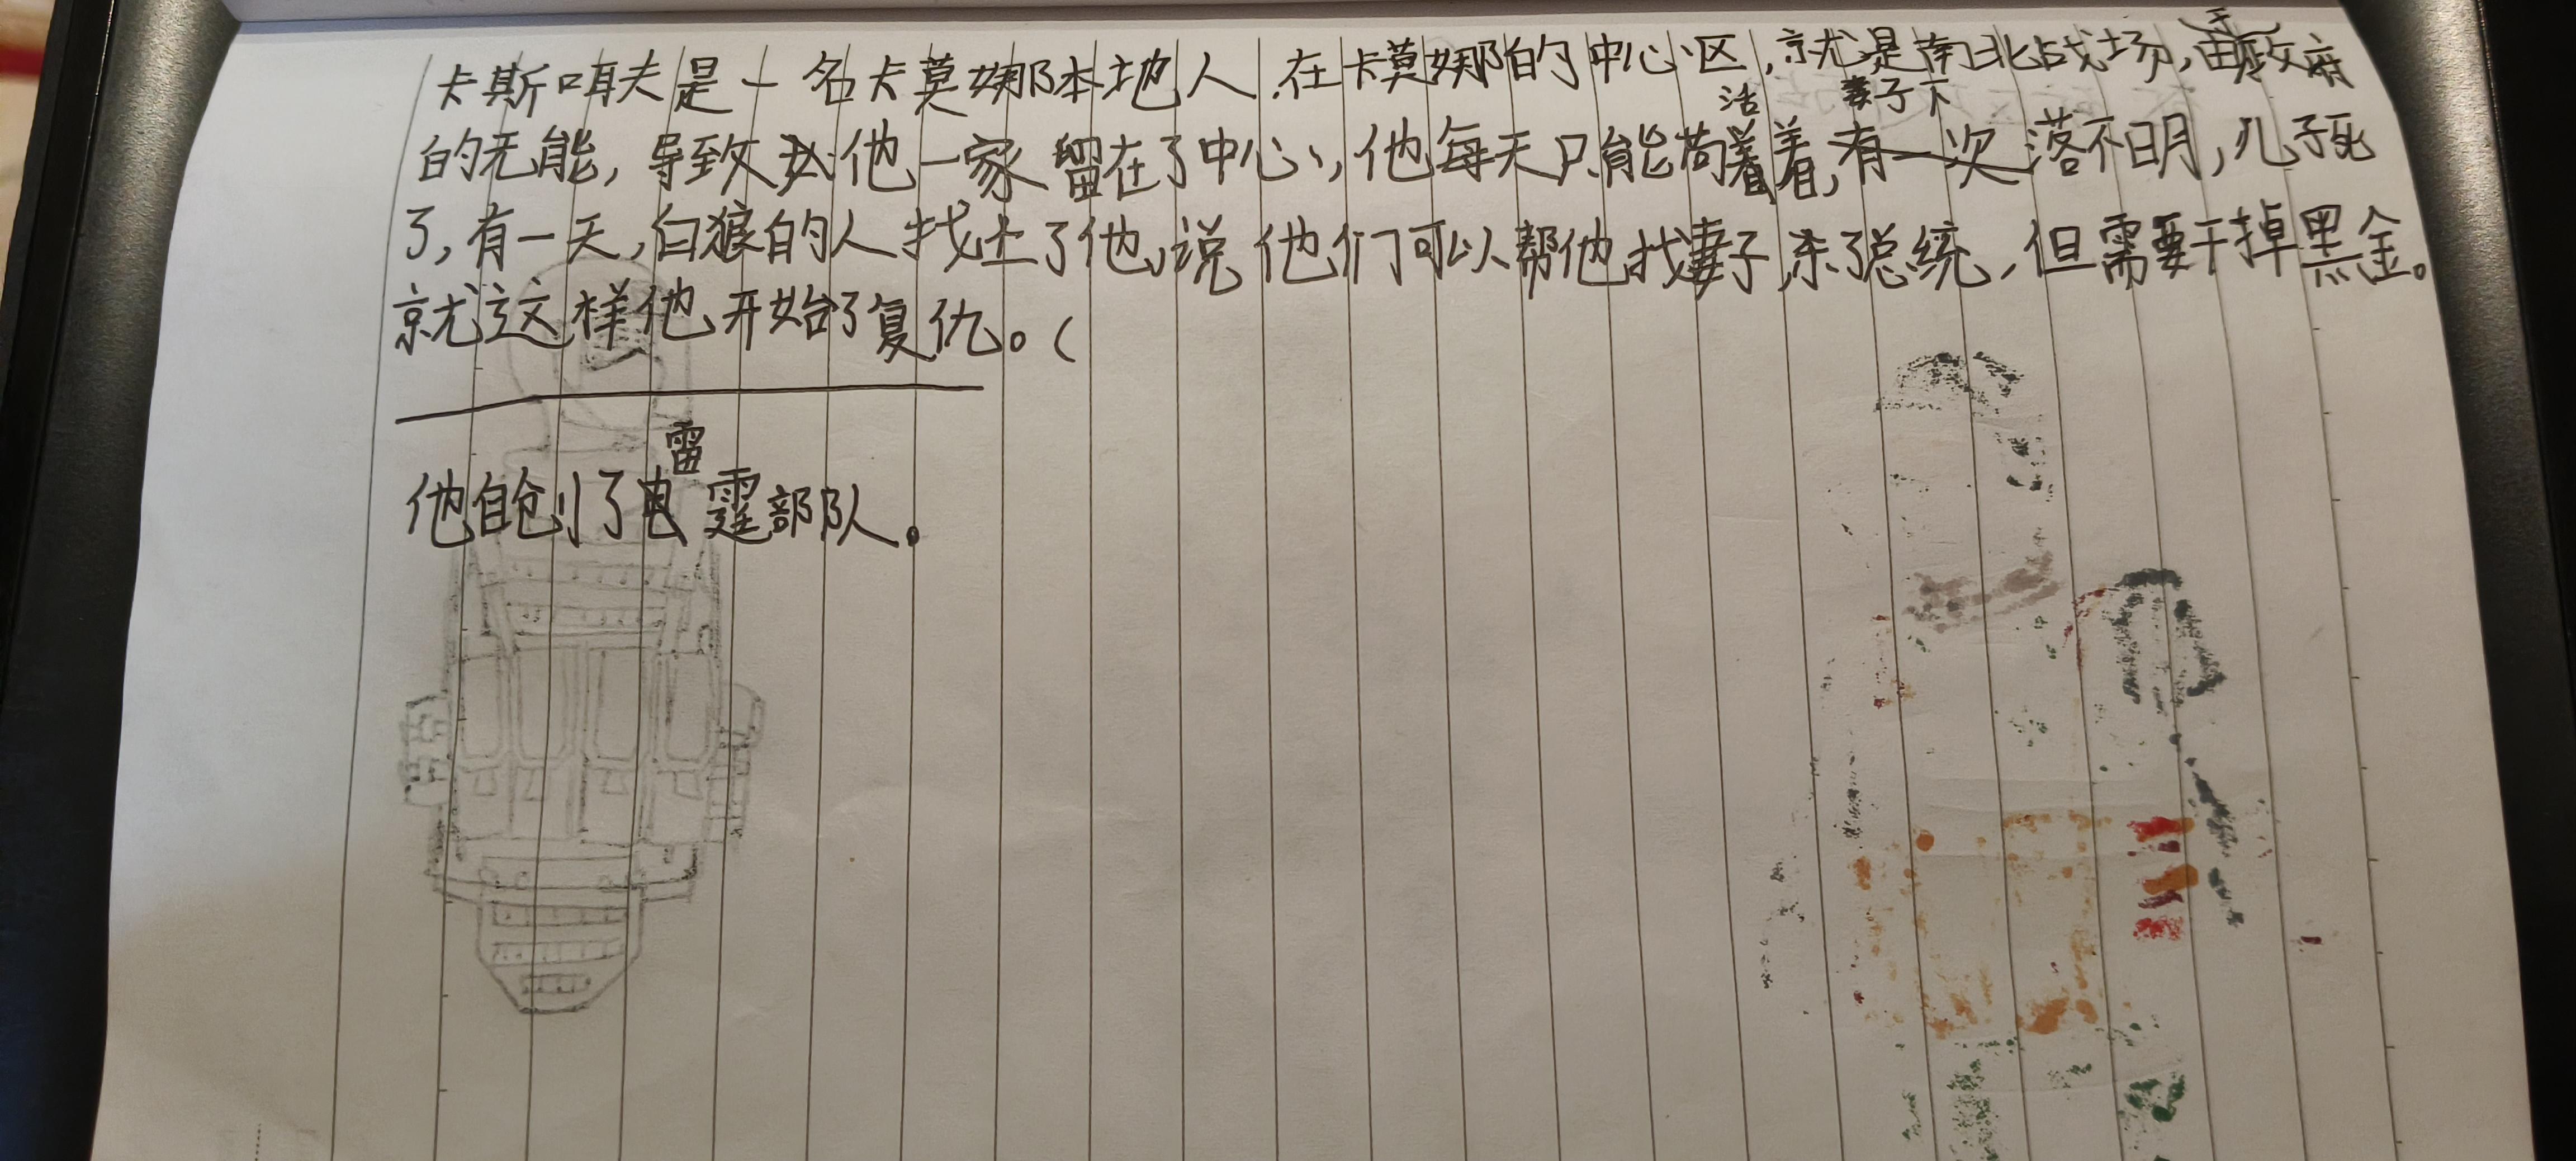 卡斯咡夫是一名卡莫娜本地人,在卡莫娜的中心区,就是南北战场,由于政府
的无能,导致他一家留在了中心,他每天只能苟活着,妻子下落不明,儿子死
了,有一天,白狼的人找上了他,说他们可以帮他找妻子,杀了总统,但需要干掉黑金。
就这样他开始了复仇。(
他自创了雷霆部队。